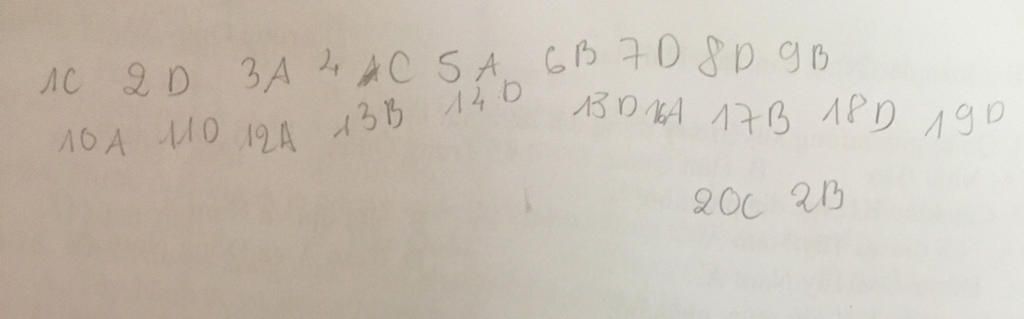 1C 2D 3A 4 C 5A 6B 7D 8D 9B
10A 11D 12A 13B 14D 13D 16A 17B 18D 19D
20C 2B